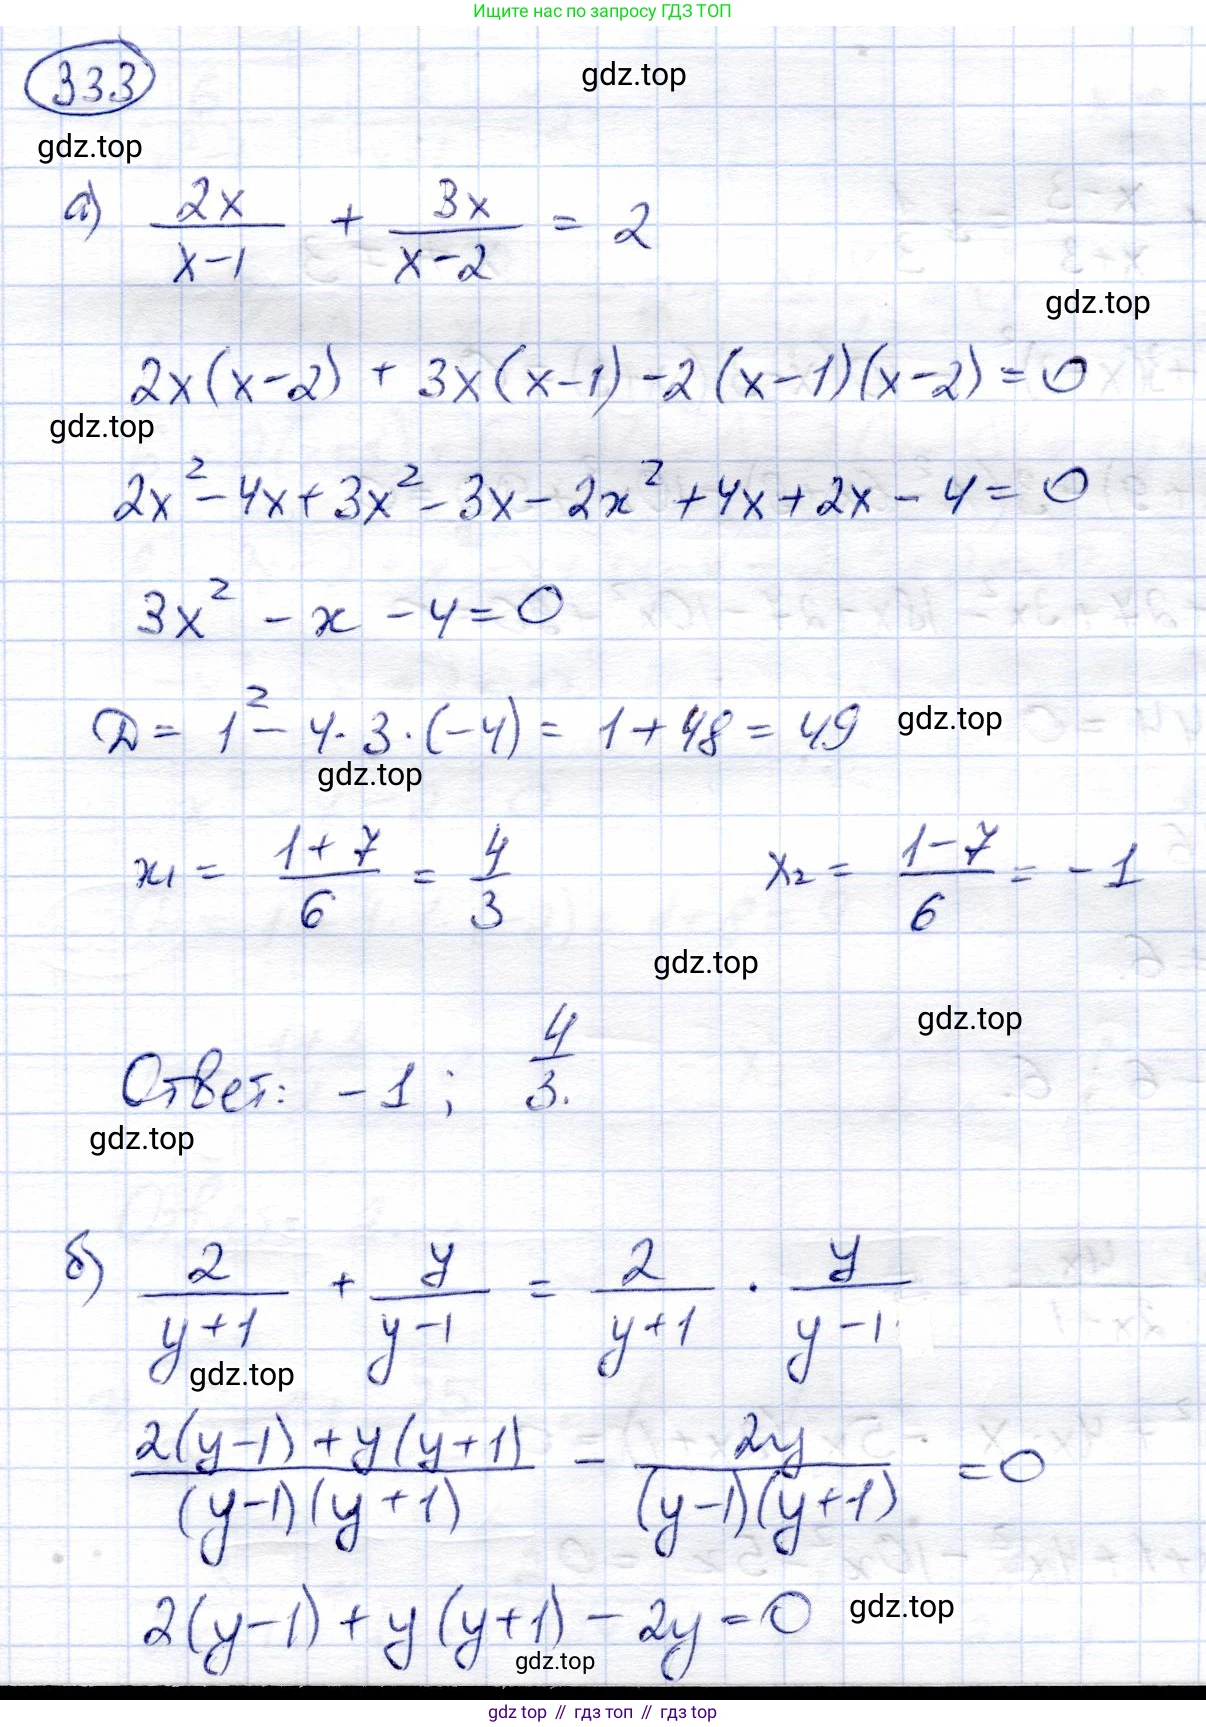 Ищите нас по запросу ГДЗ ТОП
333
gdz.top
gdz.top
а) 2x/(x-1) + 3x/(x-2) = 2
gdz.top
2x(x-2) + 3x(x-1) - 2(x-1)(x-2) = 0
gdz.top
2x² - 4x + 3x² - 3x - 2x² + 4x + 2x - 4 = 0
3x² - x - 4 = 0
D = 1² - 4·3·(-4) = 1 + 48 = 49
gdz.top
gdz.top
x₁ = (1+7)/6 = 4/3 x₂ = (1-7)/6 = -1
gdz.top
gdz.top
Ответ: -1; 4/3.
gdz.top
б) 2/(y+1) + y/(y-1) = 2/(y+1) · y/(y-1)
gdz.top
(2(y-1) + y(y+1))/((y-1)(y+1)) - 2y/((y-1)(y+1)) = 0
2(y-1) + y(y+1) - 2y = 0
gdz.top
gdz.top
gdz top // гдз топ // gdz top